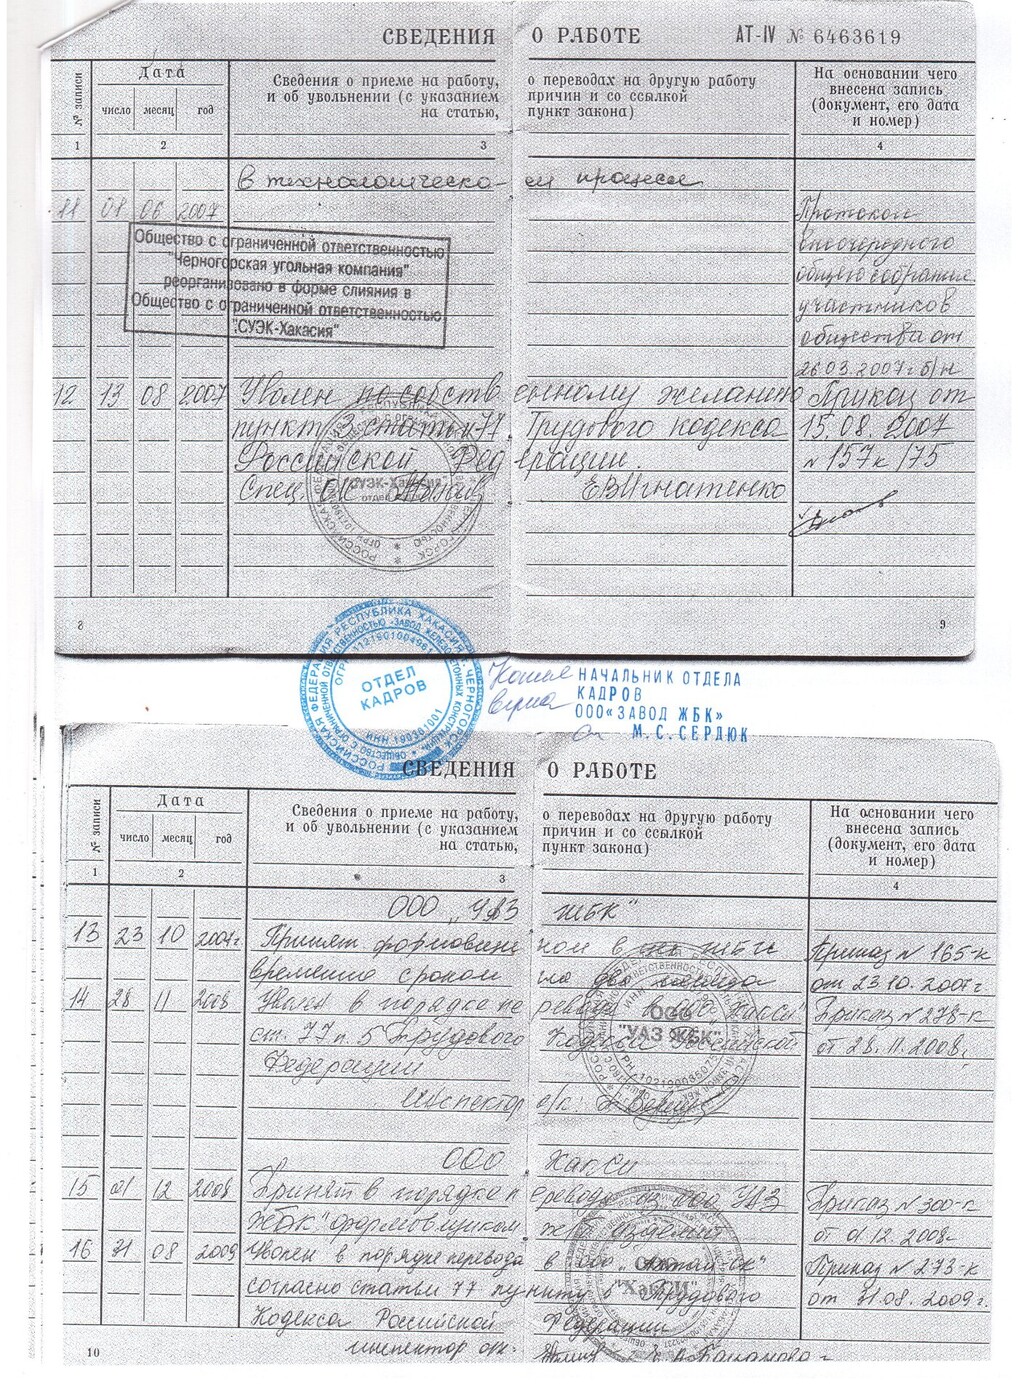 СВЕДЕНИЯ О РАБОТЕ АТ-IV № 6463619
№ записи
Дата
число месяц год
Сведения о приеме на работу, о переводах на другую работу
и об увольнении (с указанием причин и со ссылкой
на статью, пункт закона)
На основании чего
внесена запись
(документ, его дата
и номер)
1 2 3 4
в технологическо-
м процессе
11 01 06 2007
Общество с ограниченной ответственностью
"Черногорская угольная компания"
реорганизовано в форме слияния в
Общество с ограниченной ответственностью
"СУЭК-Хакасия"
Протокол
внеочередного
общего собрания
участников
общества от
26.03.2007г. б/н
12 13 08 2007 Уволен по собственному желанию Приказ от
пункт 3 статьи 77 Трудового кодекса 15.08.2007
Российской Федерации. N 157к/75
Спец. ОК ЕВИгнатенко
"СУЭК-Хакасия"
8 9
РОССИЙСКАЯ ФЕДЕРАЦИЯ РЕСПУБЛИКА ХАКАСИЯ г. ЧЕРНОГОРСК
ОТДЕЛ
КАДРОВ
ИНН 190301001
Копия
верна
НАЧАЛЬНИК ОТДЕЛА
КАДРОВ
ООО«ЗАВОД ЖБК»
М.С.СЕРДЮК
СВЕДЕНИЯ О РАБОТЕ
№ записи
Дата
число месяц год
Сведения о приеме на работу, о переводах на другую работу
и об увольнении (с указанием причин и со ссылкой
на статью, пункт закона)
На основании чего
внесена запись
(документ, его дата
и номер)
1 2 3 4
ООО „УАЗ ЖБК"
13 23 10 2007г. Принят формовщиком в ЖБК Приказ N 165-к
временно сроком на два месяца от 23.10.2007г
14 28 11 2008 Уволен в порядке перевода в ООО "Хакси" Приказ N 278-к
ст. 77 п. 5 Трудового Кодекса Российской от 28.11.2008г
Федерации
ООО
"УАЗ ЖБК"
Инспектор о/к:
ООО Хакси
15 01 12 2008 Принят в порядке перевода из ООО УАЗ Приказ N 300-к
ЖБК" формовщиком жб изделий от 01.12.2008г
16 31 08 2009 Уволен в порядке перевода в ООО Приказ N 273-к
согласно статьи 77 пункту 5 Трудового от 31.08.2009г.
Кодекса Российской Федерации
ООО
"ХаКСИ"
инспектор о/к.
10